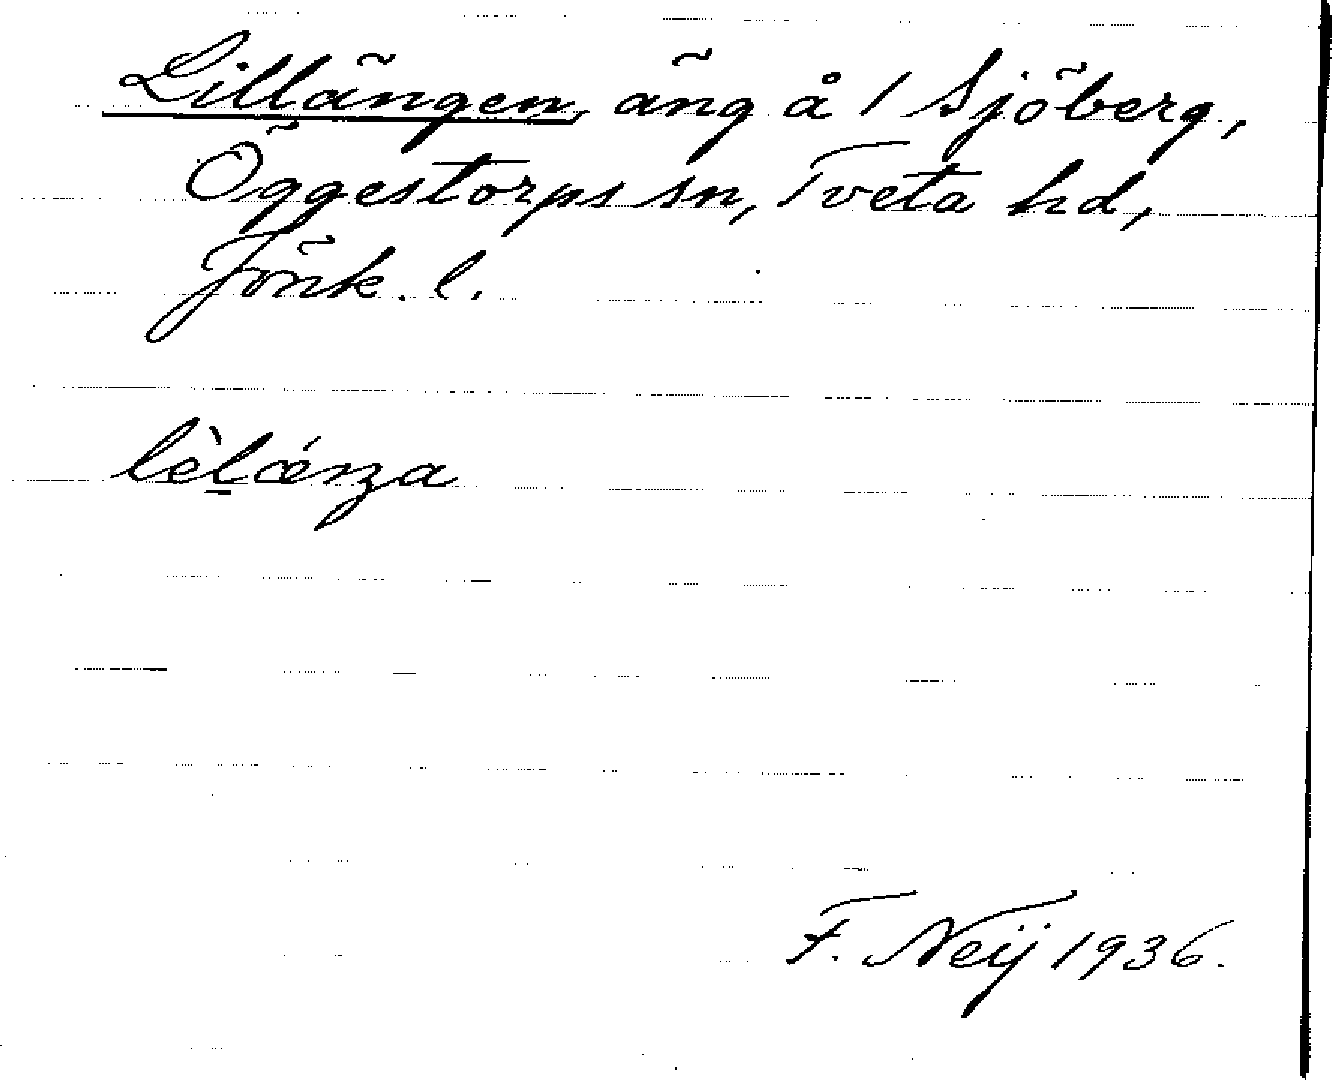 Lillängen, äng å 1 Sjöberg,
Öggestorps sn, Tveta hd,
Jönk. l.
lèḻǽnza
F. Neij 1936.